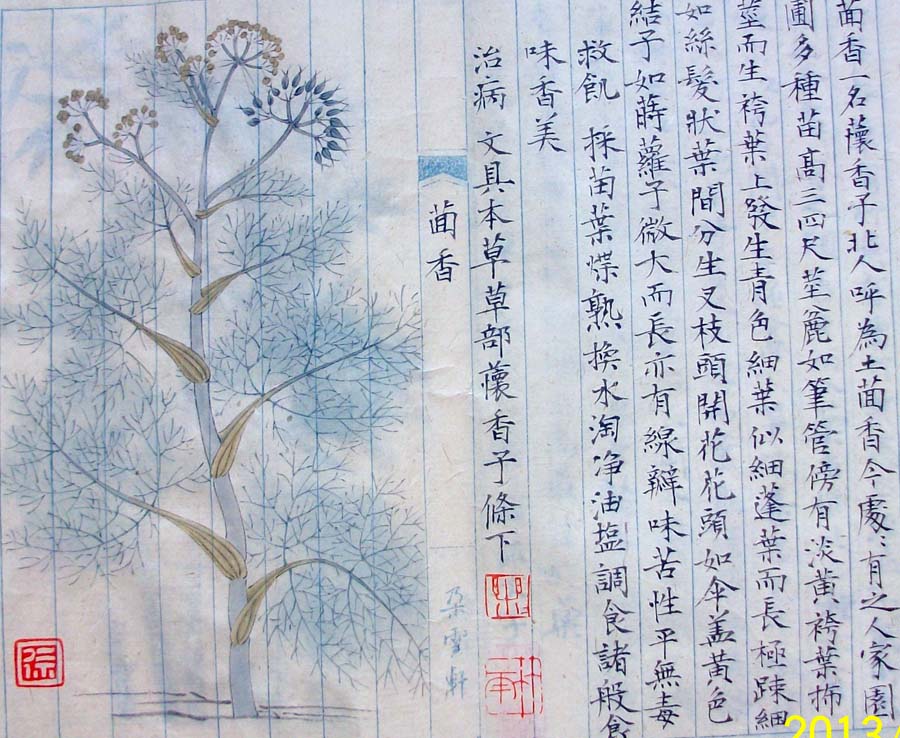 茴香一名蘹香子北人呼為土茴香今處〻有之人家園
圃多種苗高三四尺莖麄如筆管傍有淡黃袴葉抪
莖而生袴葉上發生青色細葉似細蓬葉而長極踈細
如絲髮狀葉間分生叉枝頭開花花頭如伞盖黃色
結子如蒔蘿子微大而長亦有線瓣味苦性平無毒
救飢 採苗葉煠熟換水淘净油塩調食諸般食
味香美
治病 文具本草草部蘹香子條下
茴香
朶雲軒
2013